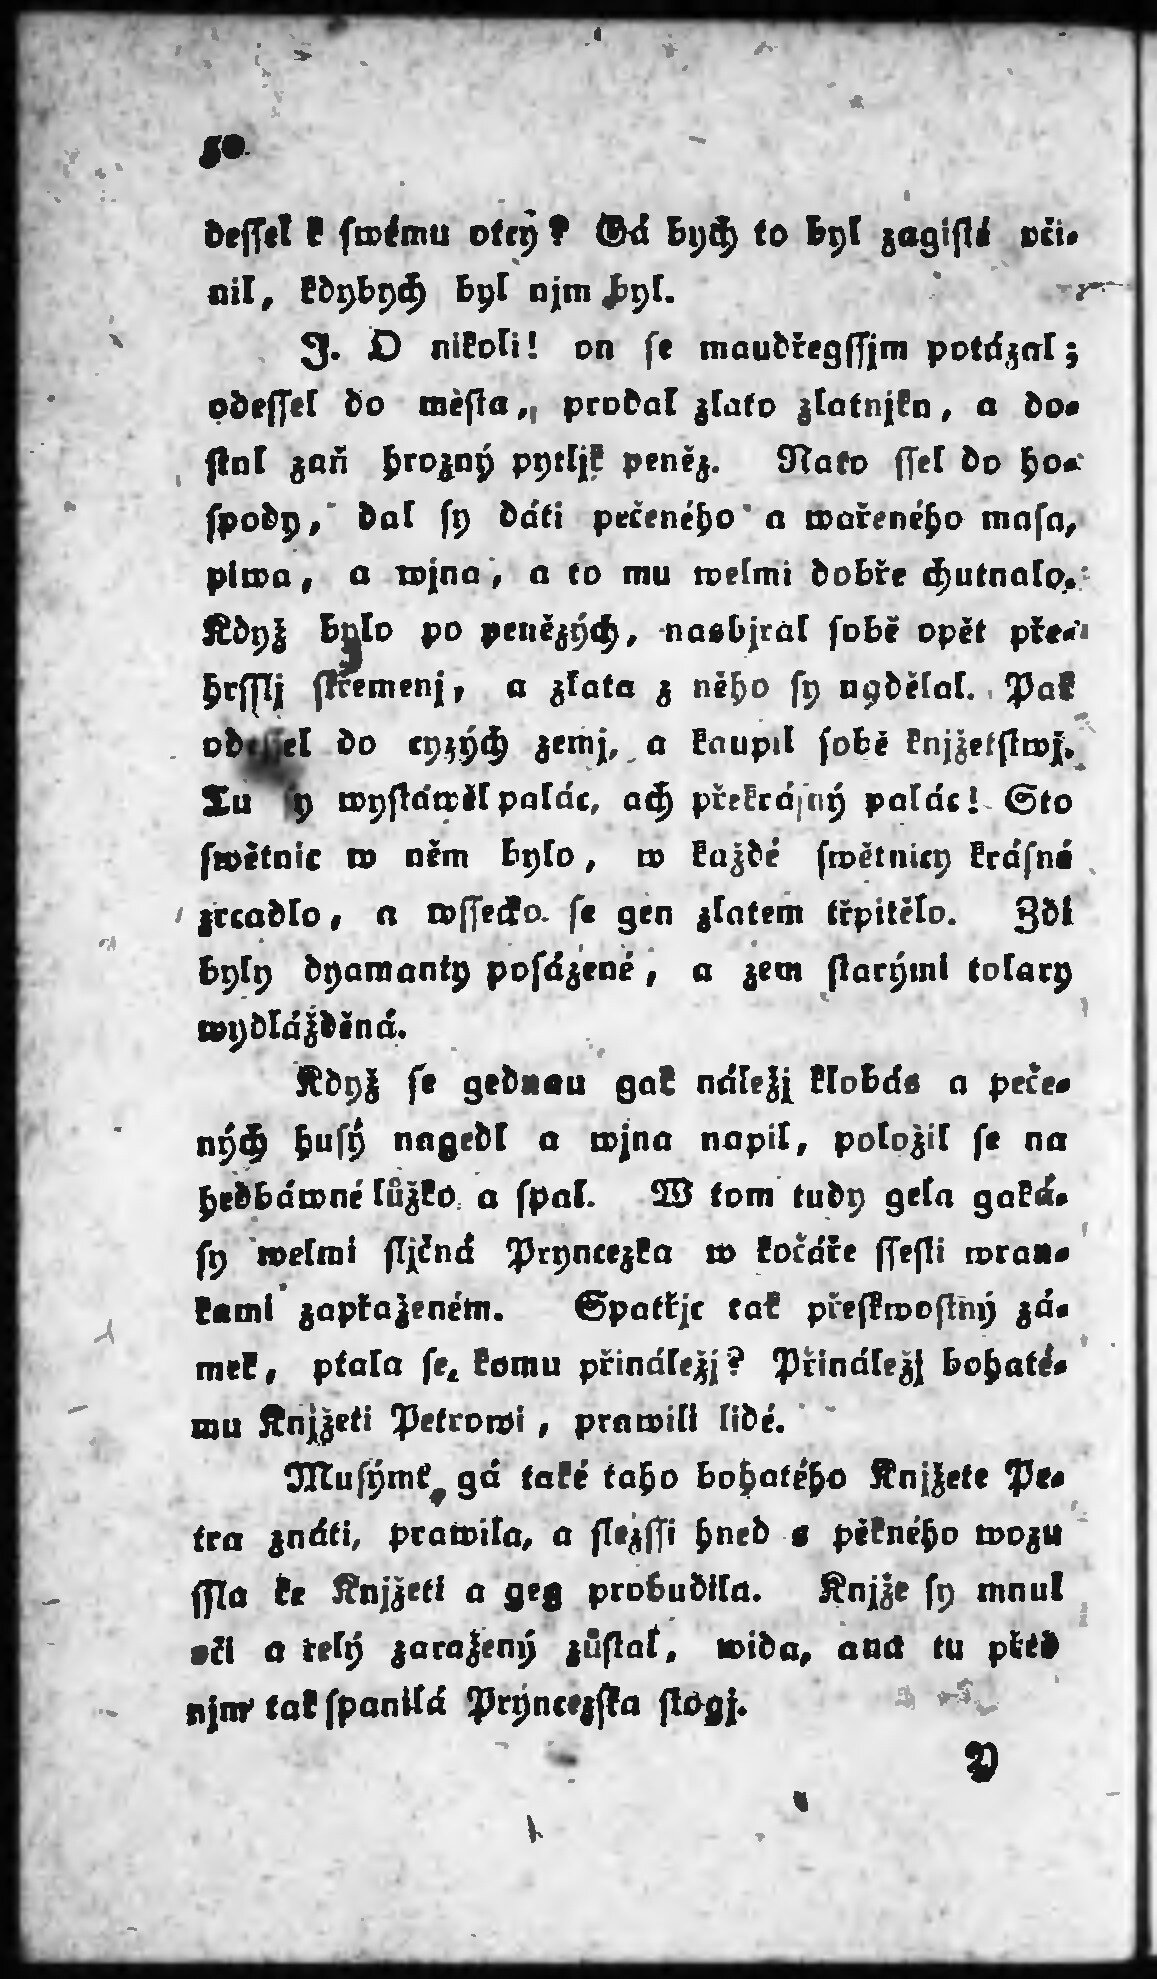 50
deſſel k ſwému otcy̌? Gá bych to byl zagiſté vči-
nil, kdybych byl njm byl.
J. O nikoli! on ſe maudřegſſjm potázal;
odeſſel do měſta, prodal zlato zlatnjku, a do-
ſtal zaň hrozný pytljk peněz. Nato ſſel do ho-
ſpody, dal ſy dáti pečeného a wařeného maſa,
piwa, a wjna, a to mu welmi dobře chutnalo.
Když bylo po penězých, naſbjral ſobě opět pře-
hrſſlj křemenj, a zlata z něho ſy nadělal. Pak
odeſſel do cyzých zemj, a kaupil ſobě knjžetſtwj.
Tu ſy wyſtáwěl palác, ach překráſný palác! Sto
ſwětnic w něm bylo, w každé ſwětnicy kráſné
zrcadlo, a wſſecko ſe gen zlatem třpitělo. Zdi
byly dyamanty poſázené, a zem ſtarými tolary
wydlážděná.
Když ſe gednau gak náležj klobás a peče-
ných huſý nagedl a wjna napil, položil ſe na
hedbáwné lůžko a ſpal. W tom tudy gela gaká-
ſy welmi ſljčná Pryncezka w kočáře ſſeſti wran-
kami zapřaženém. Spatřjc tak přeſkwoſtný zá-
mek, ptala ſe, komu přináležj? Přináležj bohaté-
mu Knjžeti Petrowi, prawili lidé.
Muſýmť gá také toho bohatého Knjžete Pe-
tra znáti, prawila, a ſlezſſi hned s pěkného wozu
ſſla ke Knjžeti a geg probudila. Knjže ſy mnul
oči a celý zaražený zůſtal, wida, ana tu před
njm tak ſpanilá Prýncezka ſtogj.
P